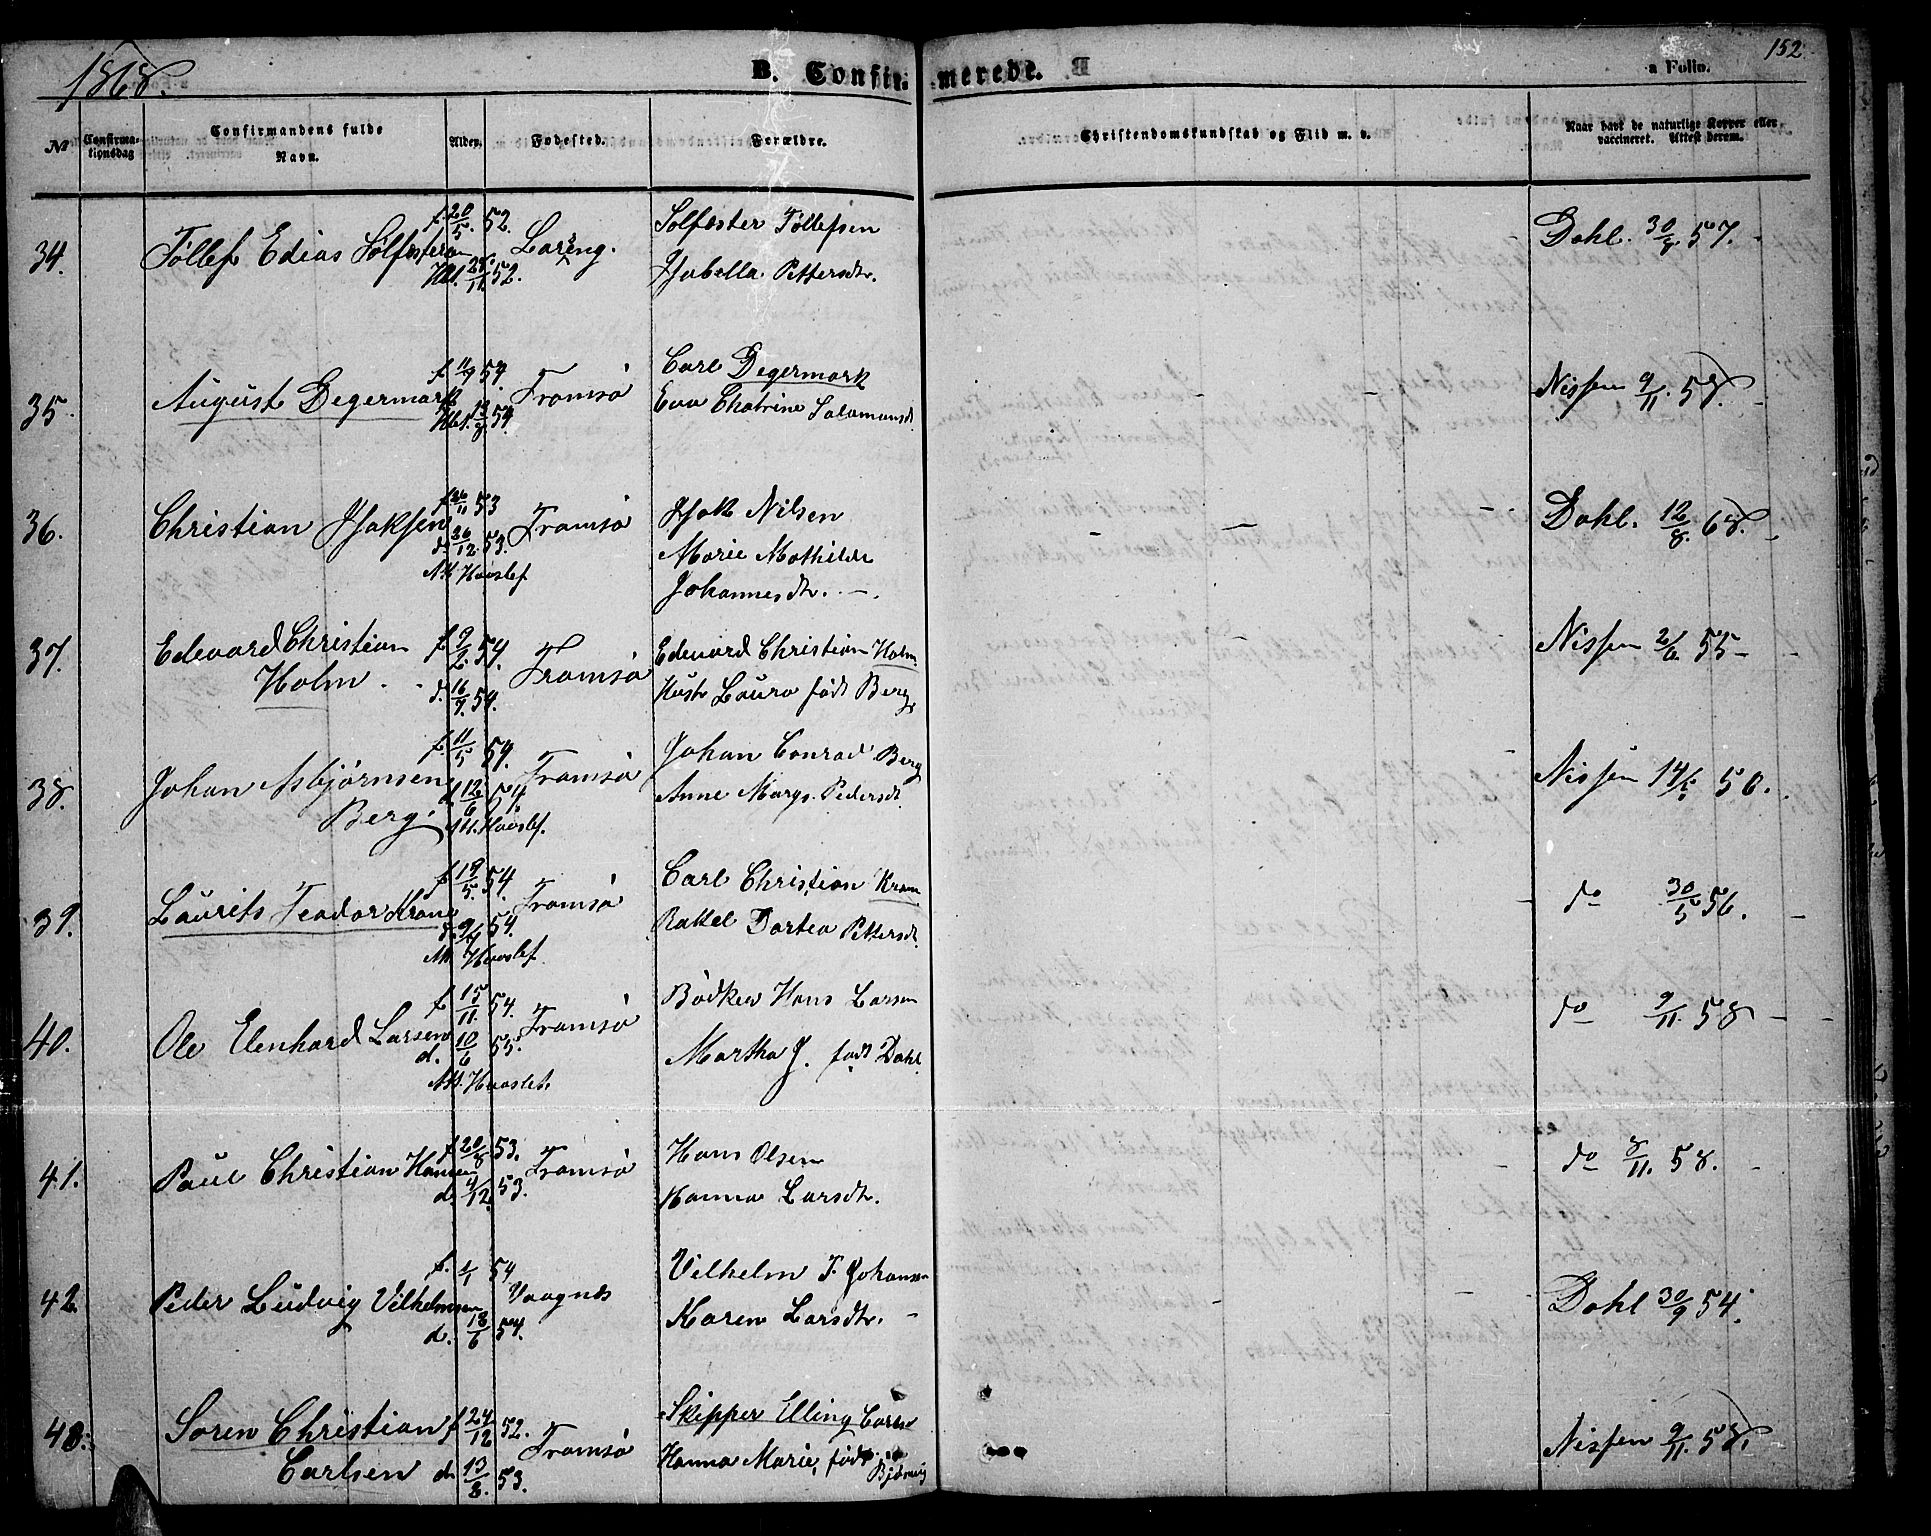 1868.
B. Confirmerede.
152
a Folio.
№
Confirmationsdag
Confirmandens fulde Navn.
Alder.
Fødested.
Forældre.
Christendomskundskab og Flid m. v.
Naar havt de naturlige Kopper eller vaccineret. Attest derom.
34.
Tøllef Edias Sølfæstersen
f. 20/5. 52.
11. 52.
Søfæster Tøllefsen
Isabella Pettersdtr.
Dahl. 57.
35.
August Degermark
f. 11/9 54
Tromsø
Carl Degermark
Eva Chatrine Salamonsd.
Nissen 9/11. 58.
36.
Christian Isaksen
f. 26/11 53
d. 26/12. 53.
Tromsø
Isak Nilsen
Marie Mathilde
Johannesdtr.
Dahl. 12/8. 68.
37.
Edevard Christian
Holm
f. 9/2. 54.
d. 16/7. 54.
Tromsø
Edevard Christian Holm
Hustr Laura født Berg
Nissen 2/6. 55
38.
Johan Asbjørnsen
Berg.
f. 11/5 54.
d. 12/6 54
Tromsø
Johan Conrad Berg
Anne Margr. Pedersdt.
Nissen 14/
39.
Laurits Teodor Krane
f. 19/5. 54
54.
Tromsø
Carl Christian Kran
Rakel Dortea Pettersdt.
do 30/5 56.
40.
Ole Elenhard Larsen
f. 15/11. 54.
d. 10/6 55.
Tromsø
Bødker Hans Larsen
Martha J. født Dahl
do 9/11. 58
41.
Paul Christian Hansen
f. 20/8 53.
d. 4/12. 53.
Tromsø
Hans Olsen
Hanna Larsdtr.
do 8/11. 58.
42
Peder Ludvig Vilhelmsen
f. 1/1 54
d. 18/6 54.
Vaagnæs
Vilhelm T. Johansen
Karen Larsdtr.
Dahl 30/9 54.
43.
Soren Christian
Carlsen
f 24/12 52.
d. 13/8. 53.
Tromsø
Skipper Elling Carls
Hanna Marie, født Bjørnvig
Nissen 9/11. 58.